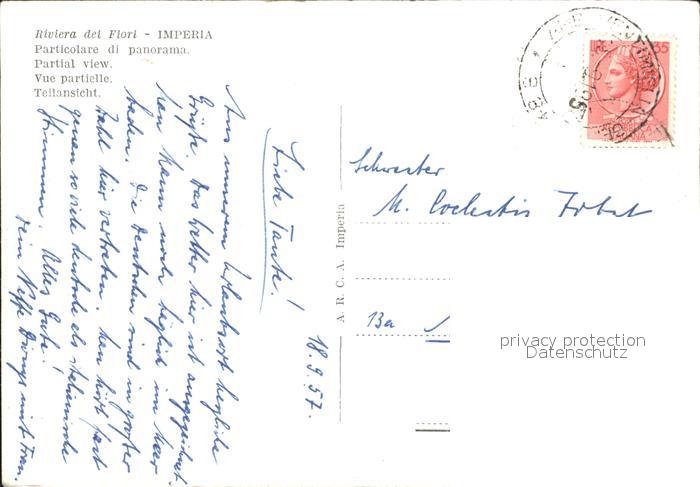 Riviera dei Fiori - IMPERIA
Particolare di panorama.
Partial view.
Vue partielle.
Teilansicht.
18.9.57.
Liebe Tante!
Aus unserem Urlaubsort herzliche
Grüße. Das Wetter hier ist ausgezeichnet.
Man kann noch täglich im Meer
baden. Die Deutschen sind in großer
Zahl hier vertreten. Man hört fast
genau so viele deutsche als italienische
Stimmen. Alles Gute!
Dein Neffe mit Frau.
A. R. C. A. Imperia
Schwester
M. Coelestis
Ba
LIRE 35
privacy protection
Datenschutz